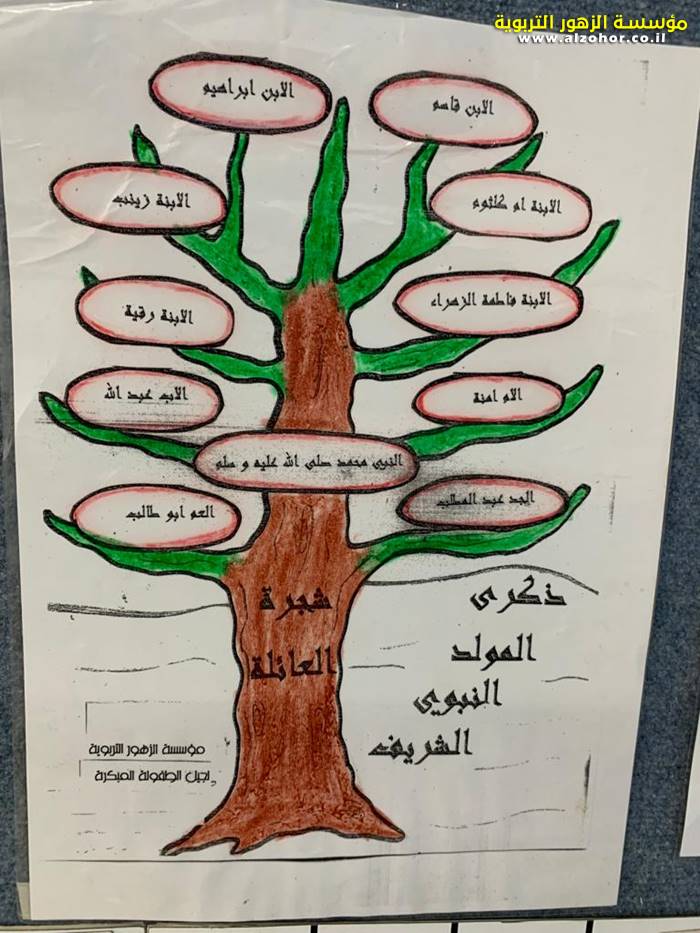 مؤسسة الزهور التربوية
www.alzohor.co.il
الابن ابراهيم
الابن قاسم
الابنة زينب
الابنة ام كلثوم
الابنة رقية
الابنة فاطمة الزهراء
الاب عبد الله
الام امنة
النبي محمد صلى الله عليه و سلم
العم ابو طالب
الجد عبد المطلب
شجرة
العائلة
ذكرى
المولد
النبوي
الشريف
مؤسسة الزهور التربوية
لجيل الطفولة المبكرة